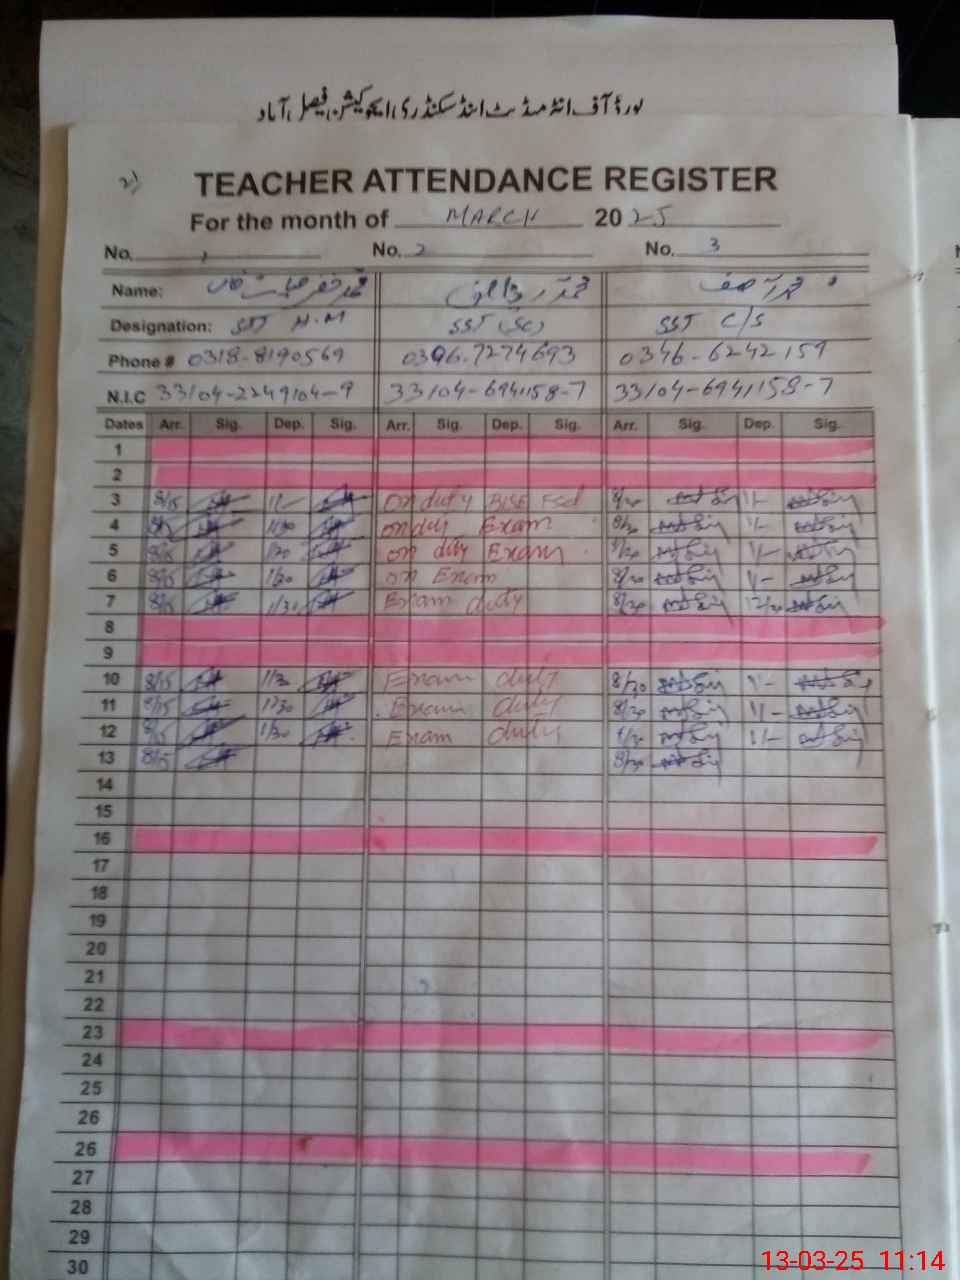 بورڈ آف انٹرمیڈیٹ اینڈ سیکنڈری ایجوکیشن، فیصل آباد
TEACHER ATTENDANCE REGISTER
For the month of MARCH 2025
No. 1 No. 2 No. 3
Name: محمد محمد محمد آصف
Designation: SST H.M SST (Sc) SST C/S
Phone # 0318-8190569 0306-7274693 0346-6242159
N.I.C 33104-2249104-9 33104-6941158-7 33104-6941158-7
Dates Arr. Sig. Dep. Sig. Arr. Sig. Dep. Sig. Arr. Sig. Dep. Sig.
1
2
3 8/15 1/- on duty BISE Fsd 8/20 1/-
4 8/15 1/30 on duty Exam 8/20 1/-
5 8/15 1/30 on duty Exam 8/20 1/-
6 8/15 1/30 on Exam 8/20 1/-
7 8/15 1/30 Exam duty 8/20 12/30
8
9
10 8/15 1/30 Exam duty 8/20 1/-
11 8/15 1/30 Exam duty 8/20 1/-
12 8/15 1/30 Exam duty 8/20 1/-
13 8/15 8/20
14
15
16
17
18
19
20
21
22
23
24
25
26
26
27
28
29
30
13-03-25 11:14